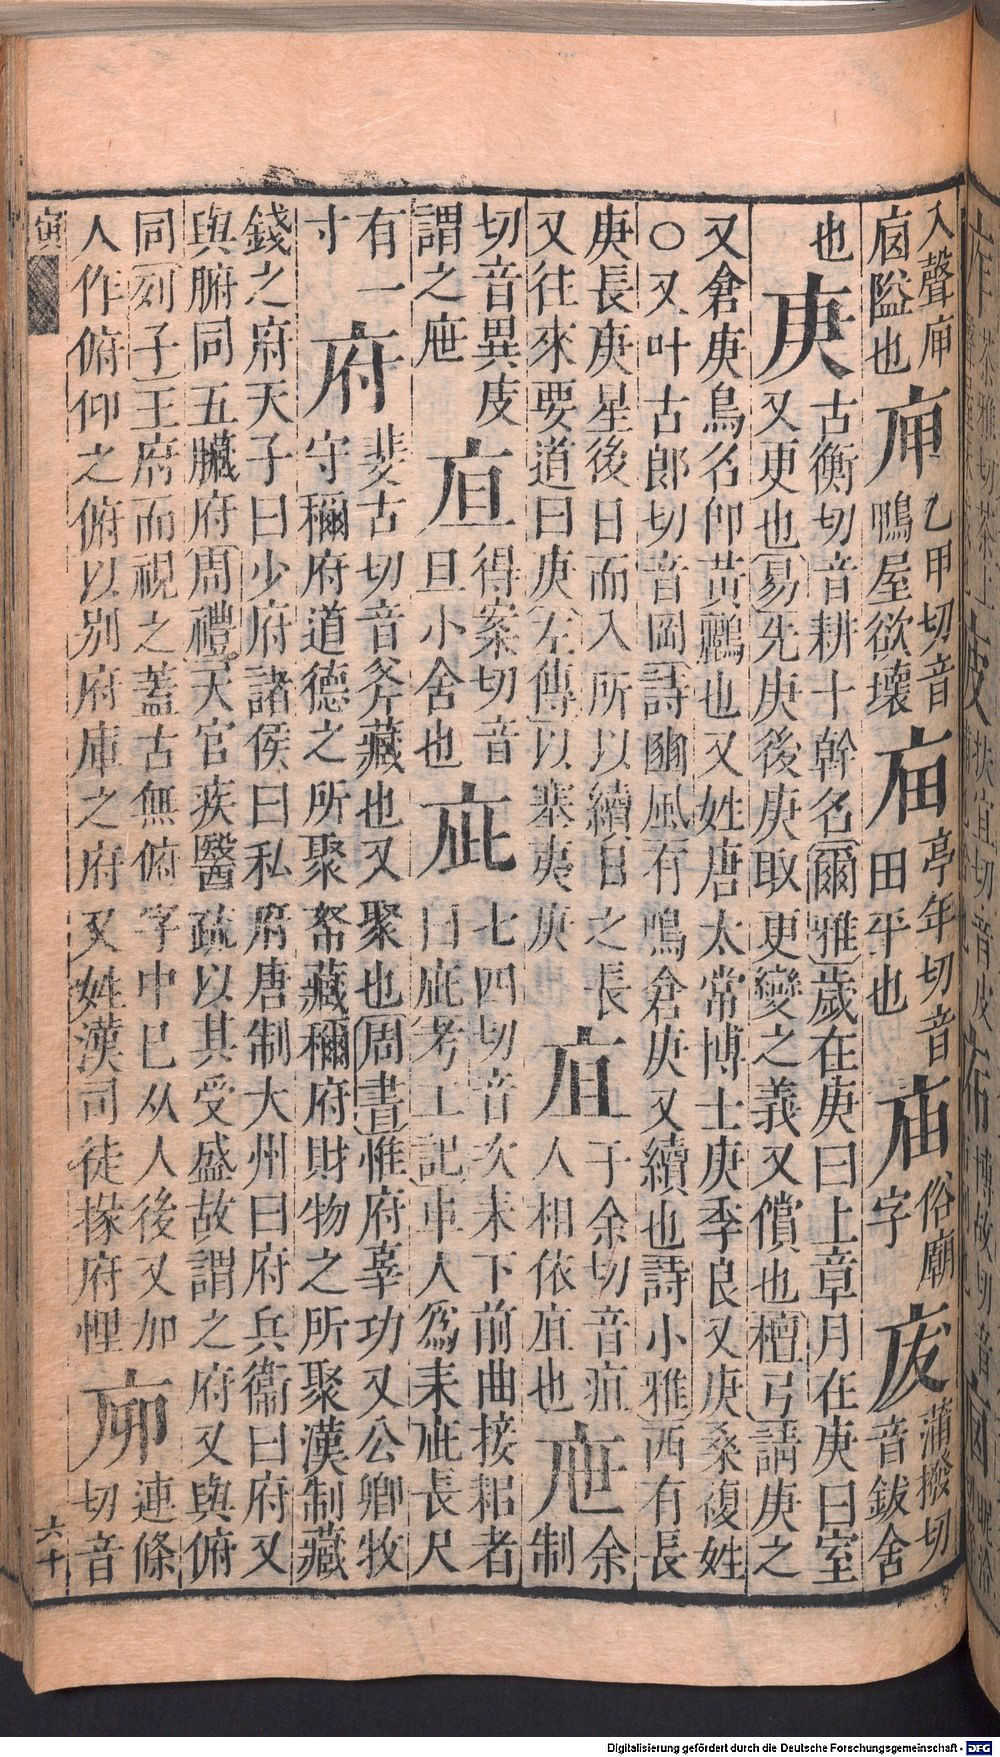 入聲庘
隘也
庘
乙甲切音
鴨屋欲壞
亭年切音
田平也
庙
俗廟
字
废
蒲撥切
音鈸舍
也
庚
古衡切音耕十幹名爾雅歲在庚曰上章月在庚曰室
又更也易先庚後庚取更變之義又償也檀弓請庚之
又倉庚鳥名卽黃鸝也又姓唐太常博士庚季良又庚桑複姓
○又叶古郎切音岡詩豳風有鳴倉庚又續也詩小雅西有長
庚長庚星後日而入所以續日之長
又往來要道曰庚左傳以塞夷庚
于余切音疽
人相依也
余
制
切音異庋
謂之
得案切音
旦小舍也
庛
七四切音次耒下前曲接耜者
曰庛考工記車人爲耒庛長尺
有一
寸
府
斐古切音斧藏也又聚也周書惟府辜功又公卿牧
守稱府道德之所聚帑藏稱府財物之所聚漢制藏
錢之府天子曰少府諸侯曰私府唐制大州曰府兵衞曰府又
與腑同五臟府周禮天官疾醫疏以其受盛故謂之府又與俯
同列子王府而視之蓋古無俯字中巳从人後又加
人作俯仰之俯以別府庫之府又姓漢司徒掾府悝
連條
切音
寅
六十
Digitalisierung gefördert durch die Deutsche Forschungsgemeinschaft - DFG